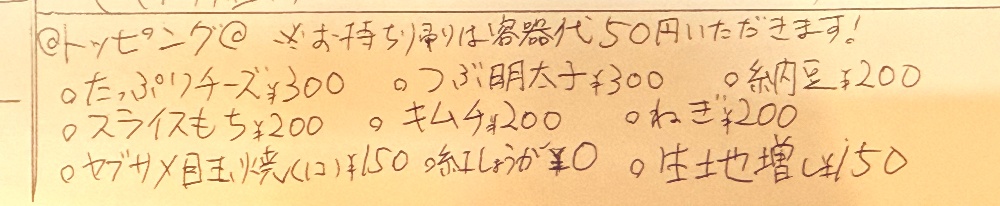 ◎トッピング◎ ※お持ち帰りは容器代50円いただきます!
○たっぷりチーズ¥300 ○つぶ明太子¥300 ○納豆¥200
○スライスもち¥200 ○キムチ¥200 ○ねぎ¥200
○ヤブサメ目玉焼(1コ)¥150 ○紅しょうが¥0 ○生地増し¥150